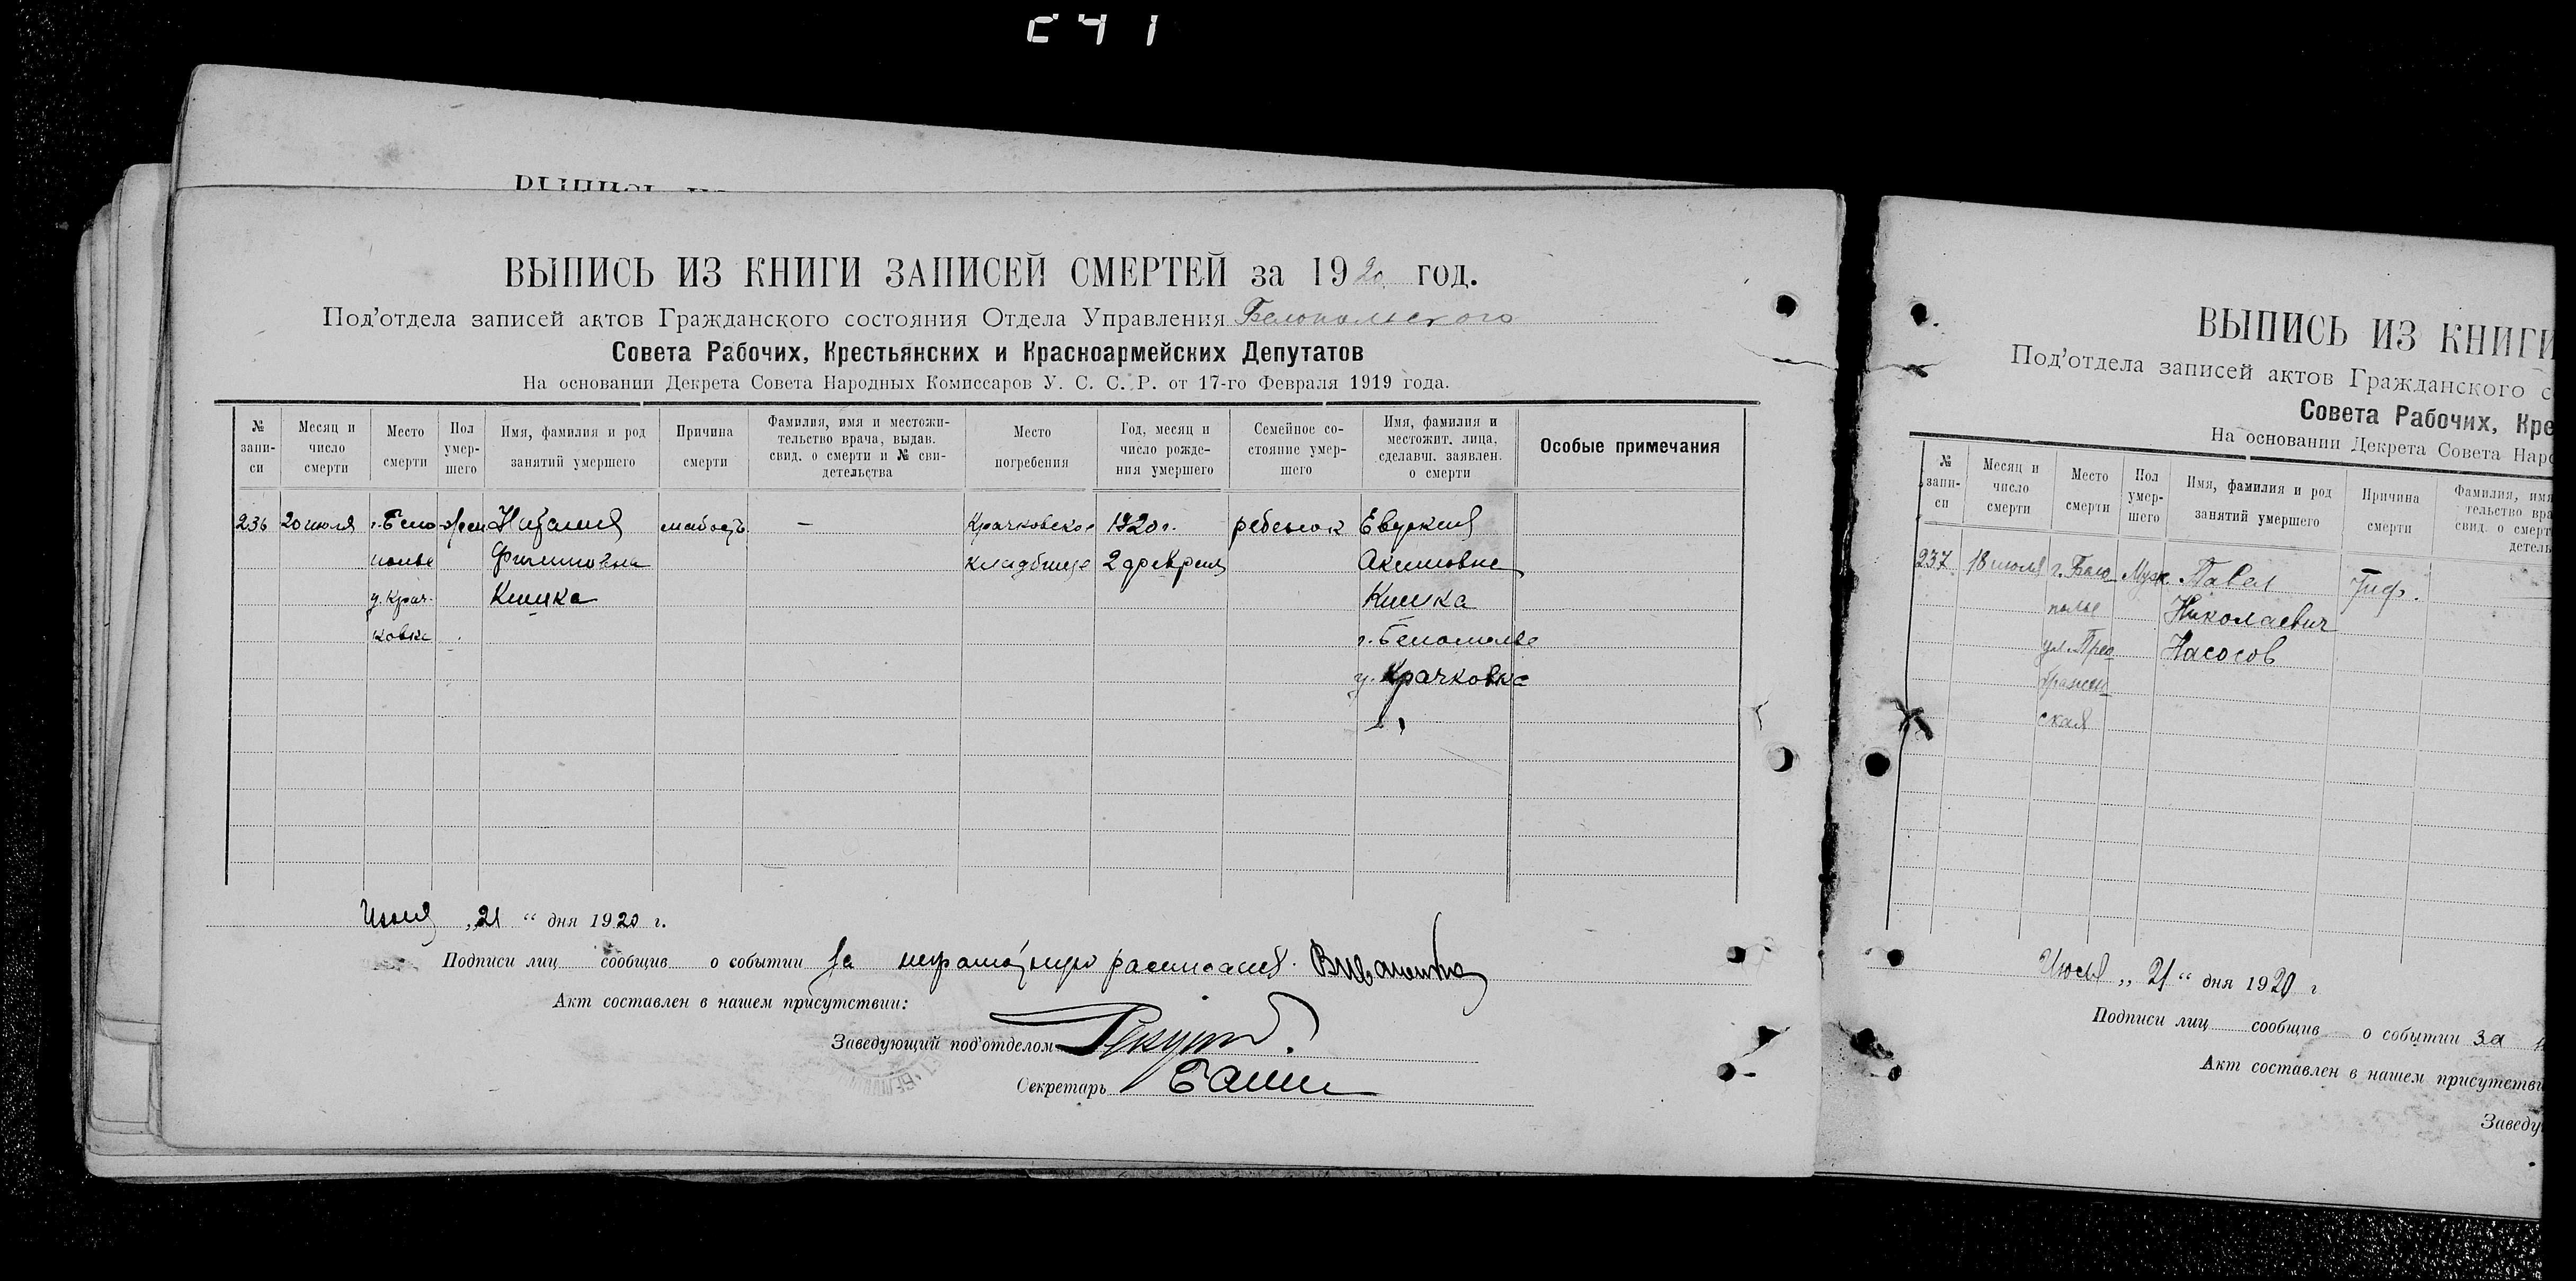 241
ВЫПИСЬ ИЗ КНИГИ ЗАПИСЕЙ СМЕРТЕЙ за 1920 год.
Под'отдела записей актов Гражданского состояния Отдела Управления Белопольского
Совета Рабочих, Крестьянских и Красноармейских Депутатов
На основании Декрета Совета Народных Комиссаров У. С. С. Р. от 17-го Февраля 1919 года.
№ записи
Месяц и число смерти
Место смерти
Пол умершего
Имя, фамилия и род занятий умершего
Причина смерти
Фамилия, имя и местожительство врача, выдав. свид. о смерти и № свидетельства
Место погребения
Год, месяц и число рождения умершего
Семейное состояние умершего
Имя, фамилия и местожит. лица, сделавш. заявлен. о смерти
Особые примечания
236 20 июля г. Бело жен Наталия слабость — Крачковское 1920 г. ребенок Евдокия
полье Филиповна кладбище 2 февраля Акимовна
у. Крач- Кишка Кишка
ковка г. Белополье
у. Крачковка
Июля „21“ дня 1920 г.
Подписи лиц сообщив о событии За неграмотную расписался
Акт составлен в нашем присутствии:
Заведующий под'отделом
Секретарь
ВЫПИСЬ ИЗ КНИГИ
Под'отдела записей актов Гражданского с
Совета Рабочих, Кре
На основании Декрета Совета Наро
№ записи
Месяц и число смерти
Место смерти
Пол умершего
Имя, фамилия и род занятий умершего
Причина смерти
Фамилия, имя
тельство вра
свид. о смерт
детель
237 18 июля г. Бело Муж. Павел Тиф.
полье Николаевич
ул. Прео Насосов
бражен
ская
Июля „21“ дня 1920 г
Подписи лиц сообщив о событии За
Акт составлен в нашем присутстви
Заведу